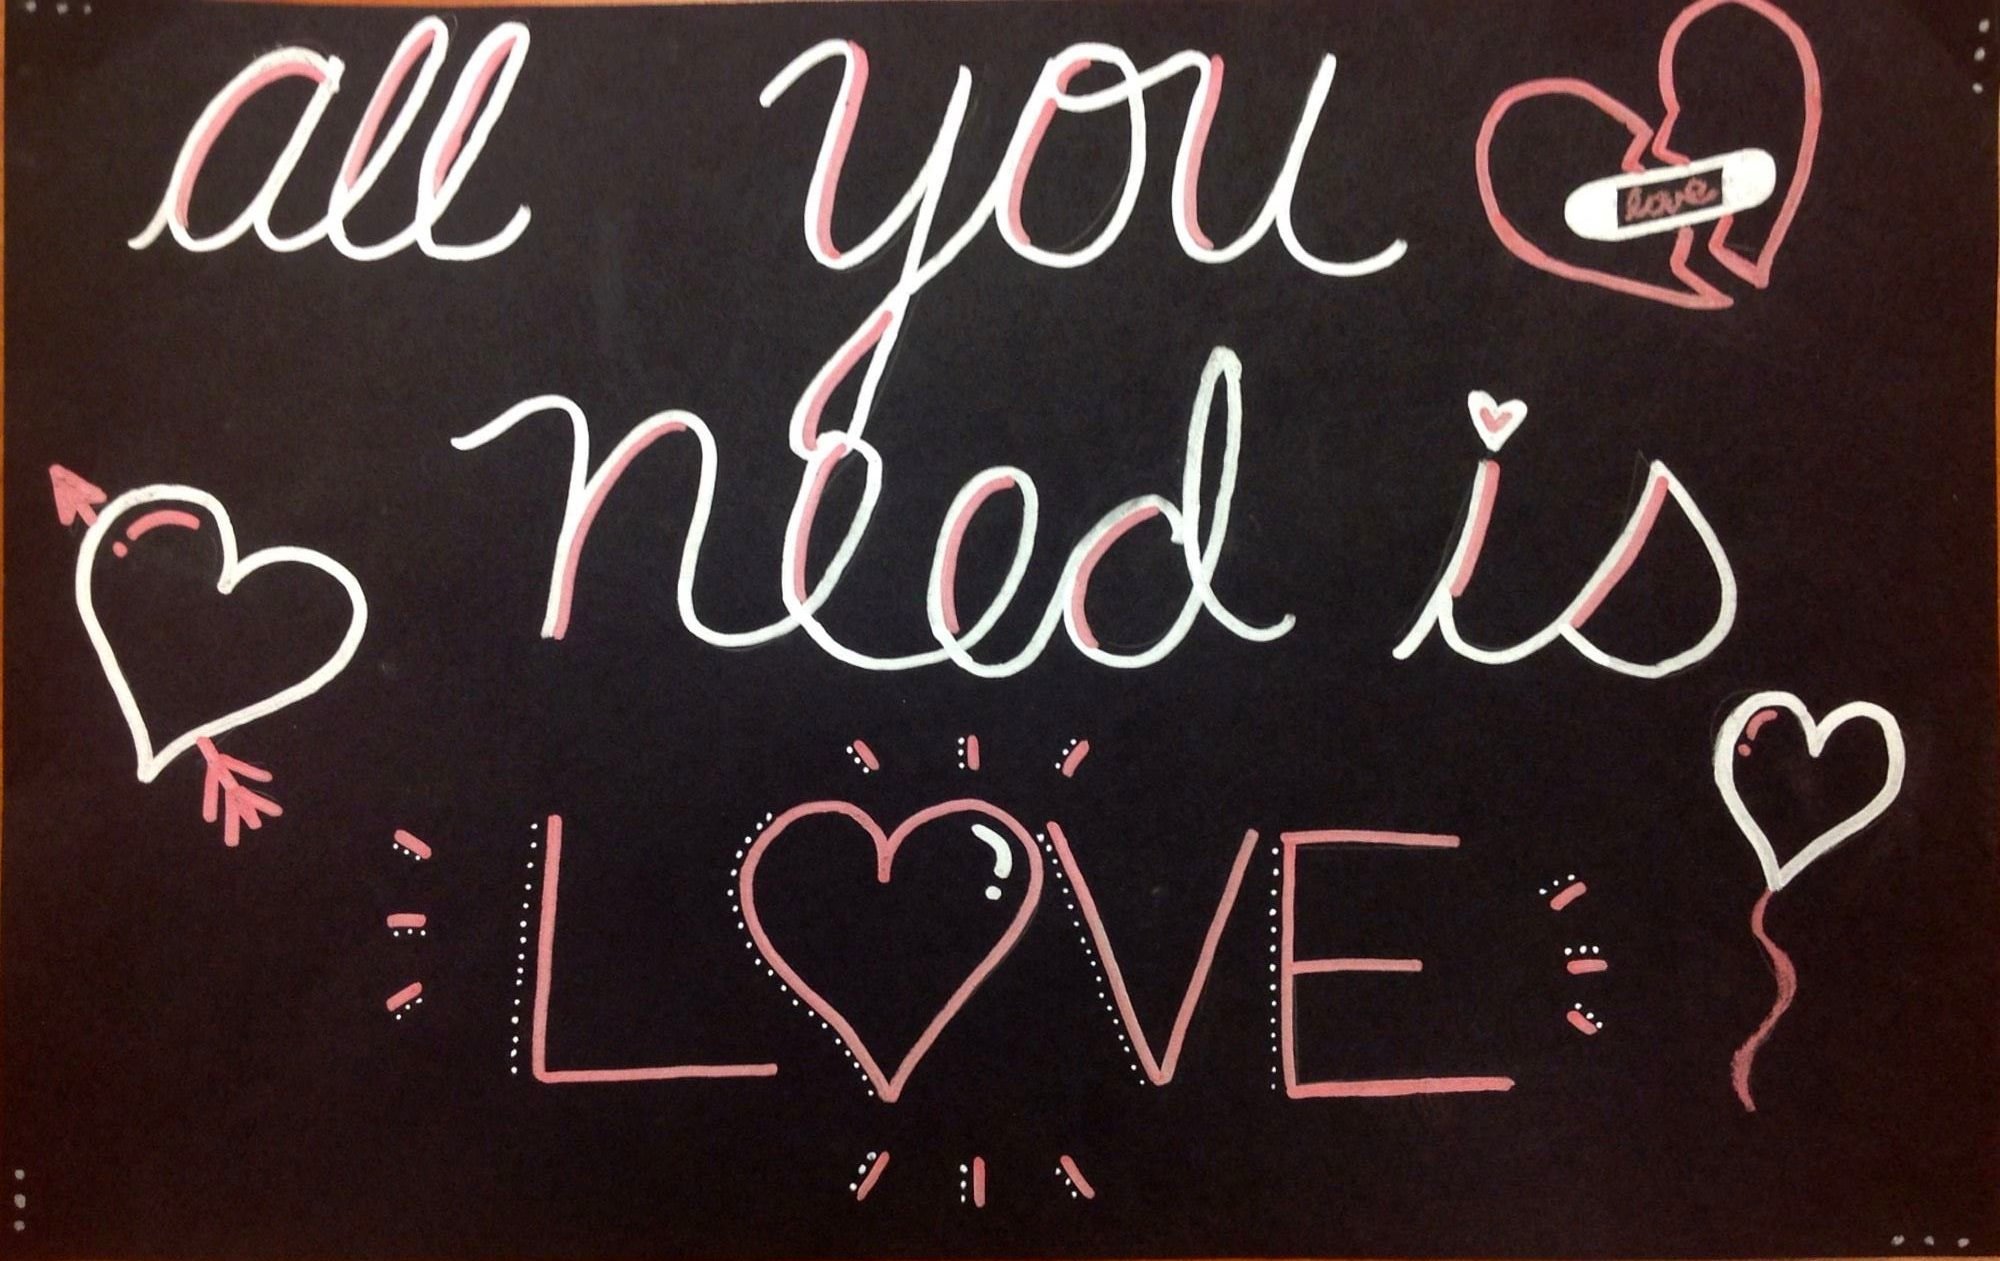 all you
love
need is
LOVE